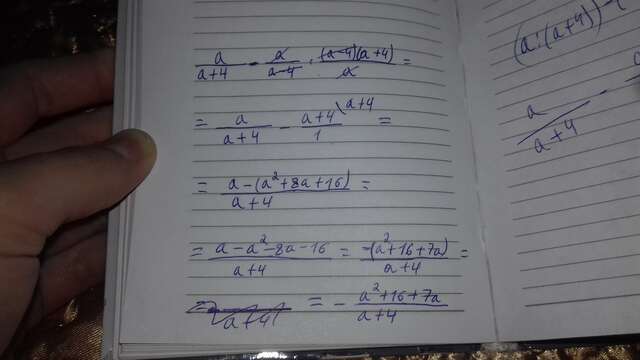 a/(a+4) - a/(a-4) · (a-4)(a+4)/a =
= a/(a+4) - (a+4)/1 \a+4 =
= (a-(a²+8a+16))/(a+4) =
= (a-a²-8a-16)/(a+4) = -(a²+16+7a)/(a+4) =
= - (a²+16+7a)/(a+4)
(a:(a+4))-(
a/(a+4) -